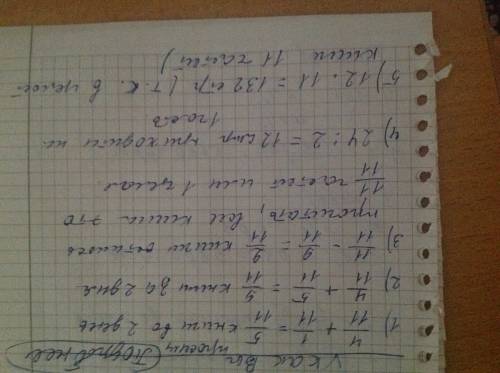 как Вы Подробнее
1) 4/11 + 1/11 = 5/11 книги во 2 день
2) 4/11 + 5/11 = 9/11 книги за 2 дня
3) 11/11 - 9/11 = 2/11 книги осталось
прочитать, вся книга это
11/11 частей или 1 целая
4) 24 : 2 = 12 стр приходится на
1 часть
5) 12 · 11 = 132 стр (т.к. в целой
книги 11 частей)